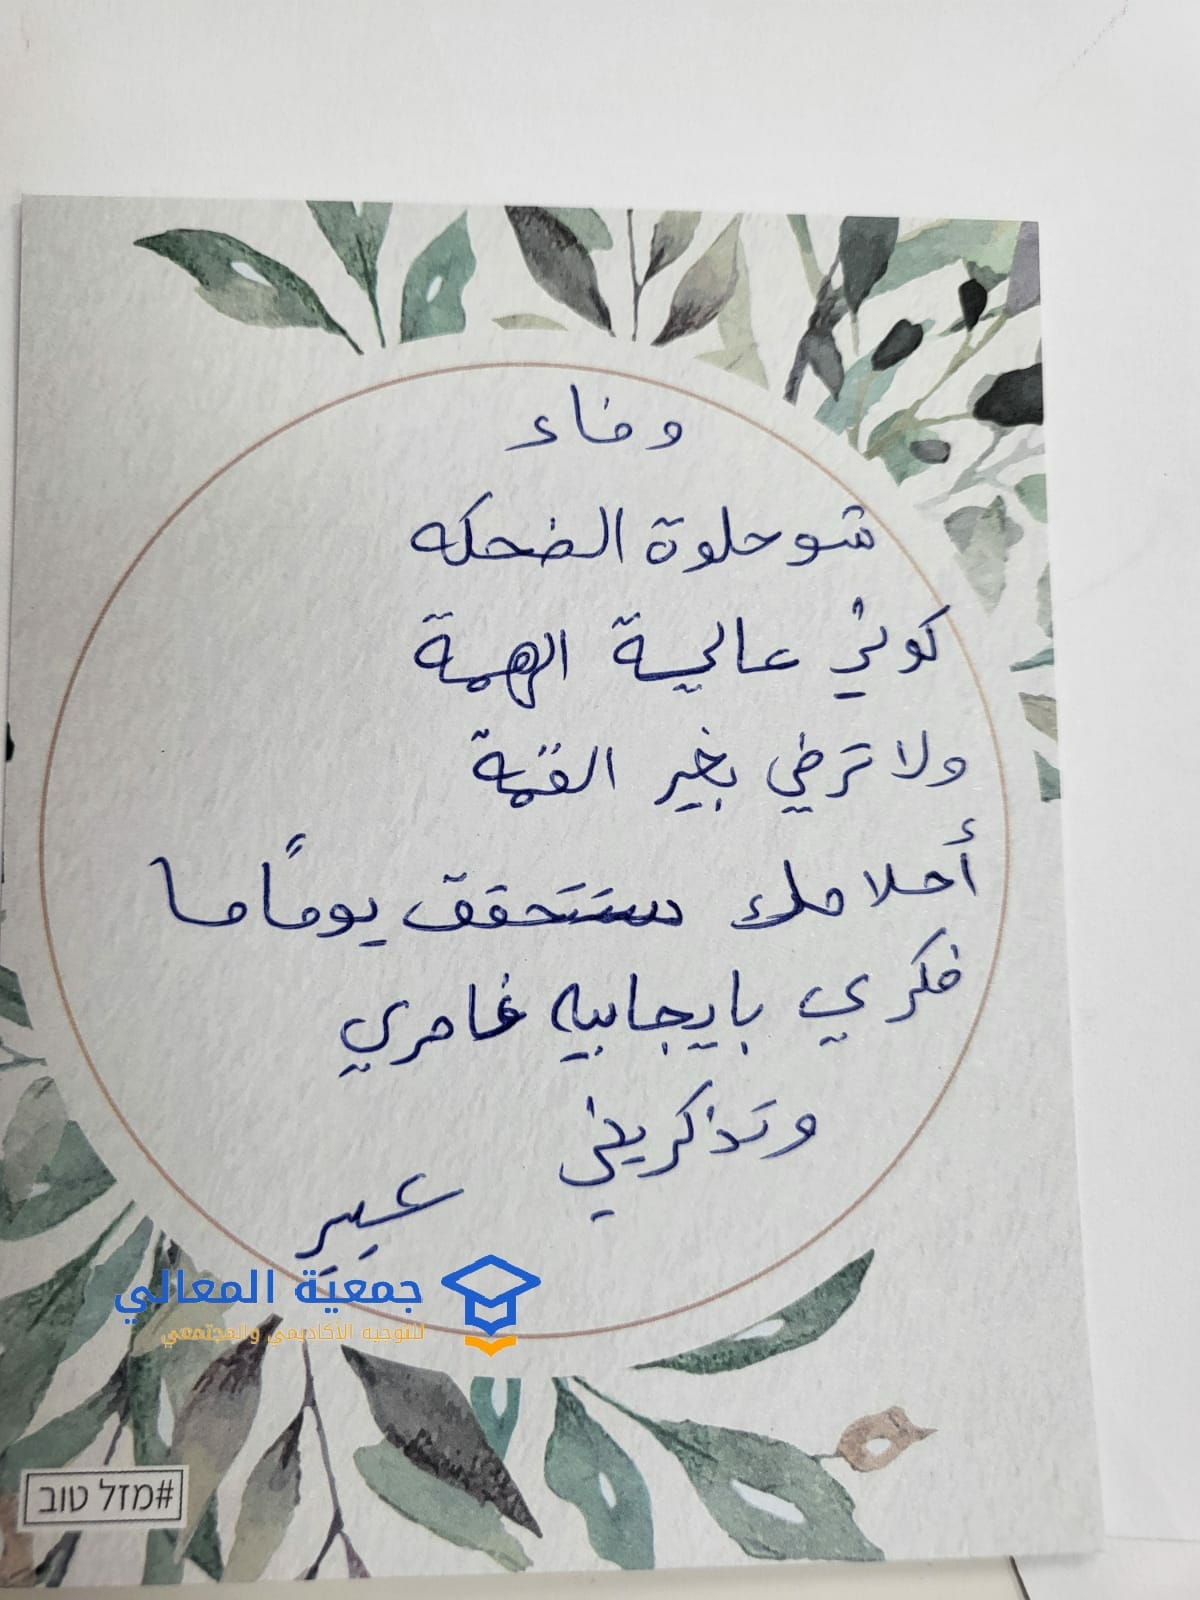 وفاء
شو حلوة الضحكه
كوني عالية الهمة
ولا ترضي بغير القمة
أحلامك ستتحقق يومًا ما
فكري بايجابيه غامري
وتذكريني
عبير
جمعية المعالي
للتوجيه الأكاديمي والمجتمعي
#מזל טוב